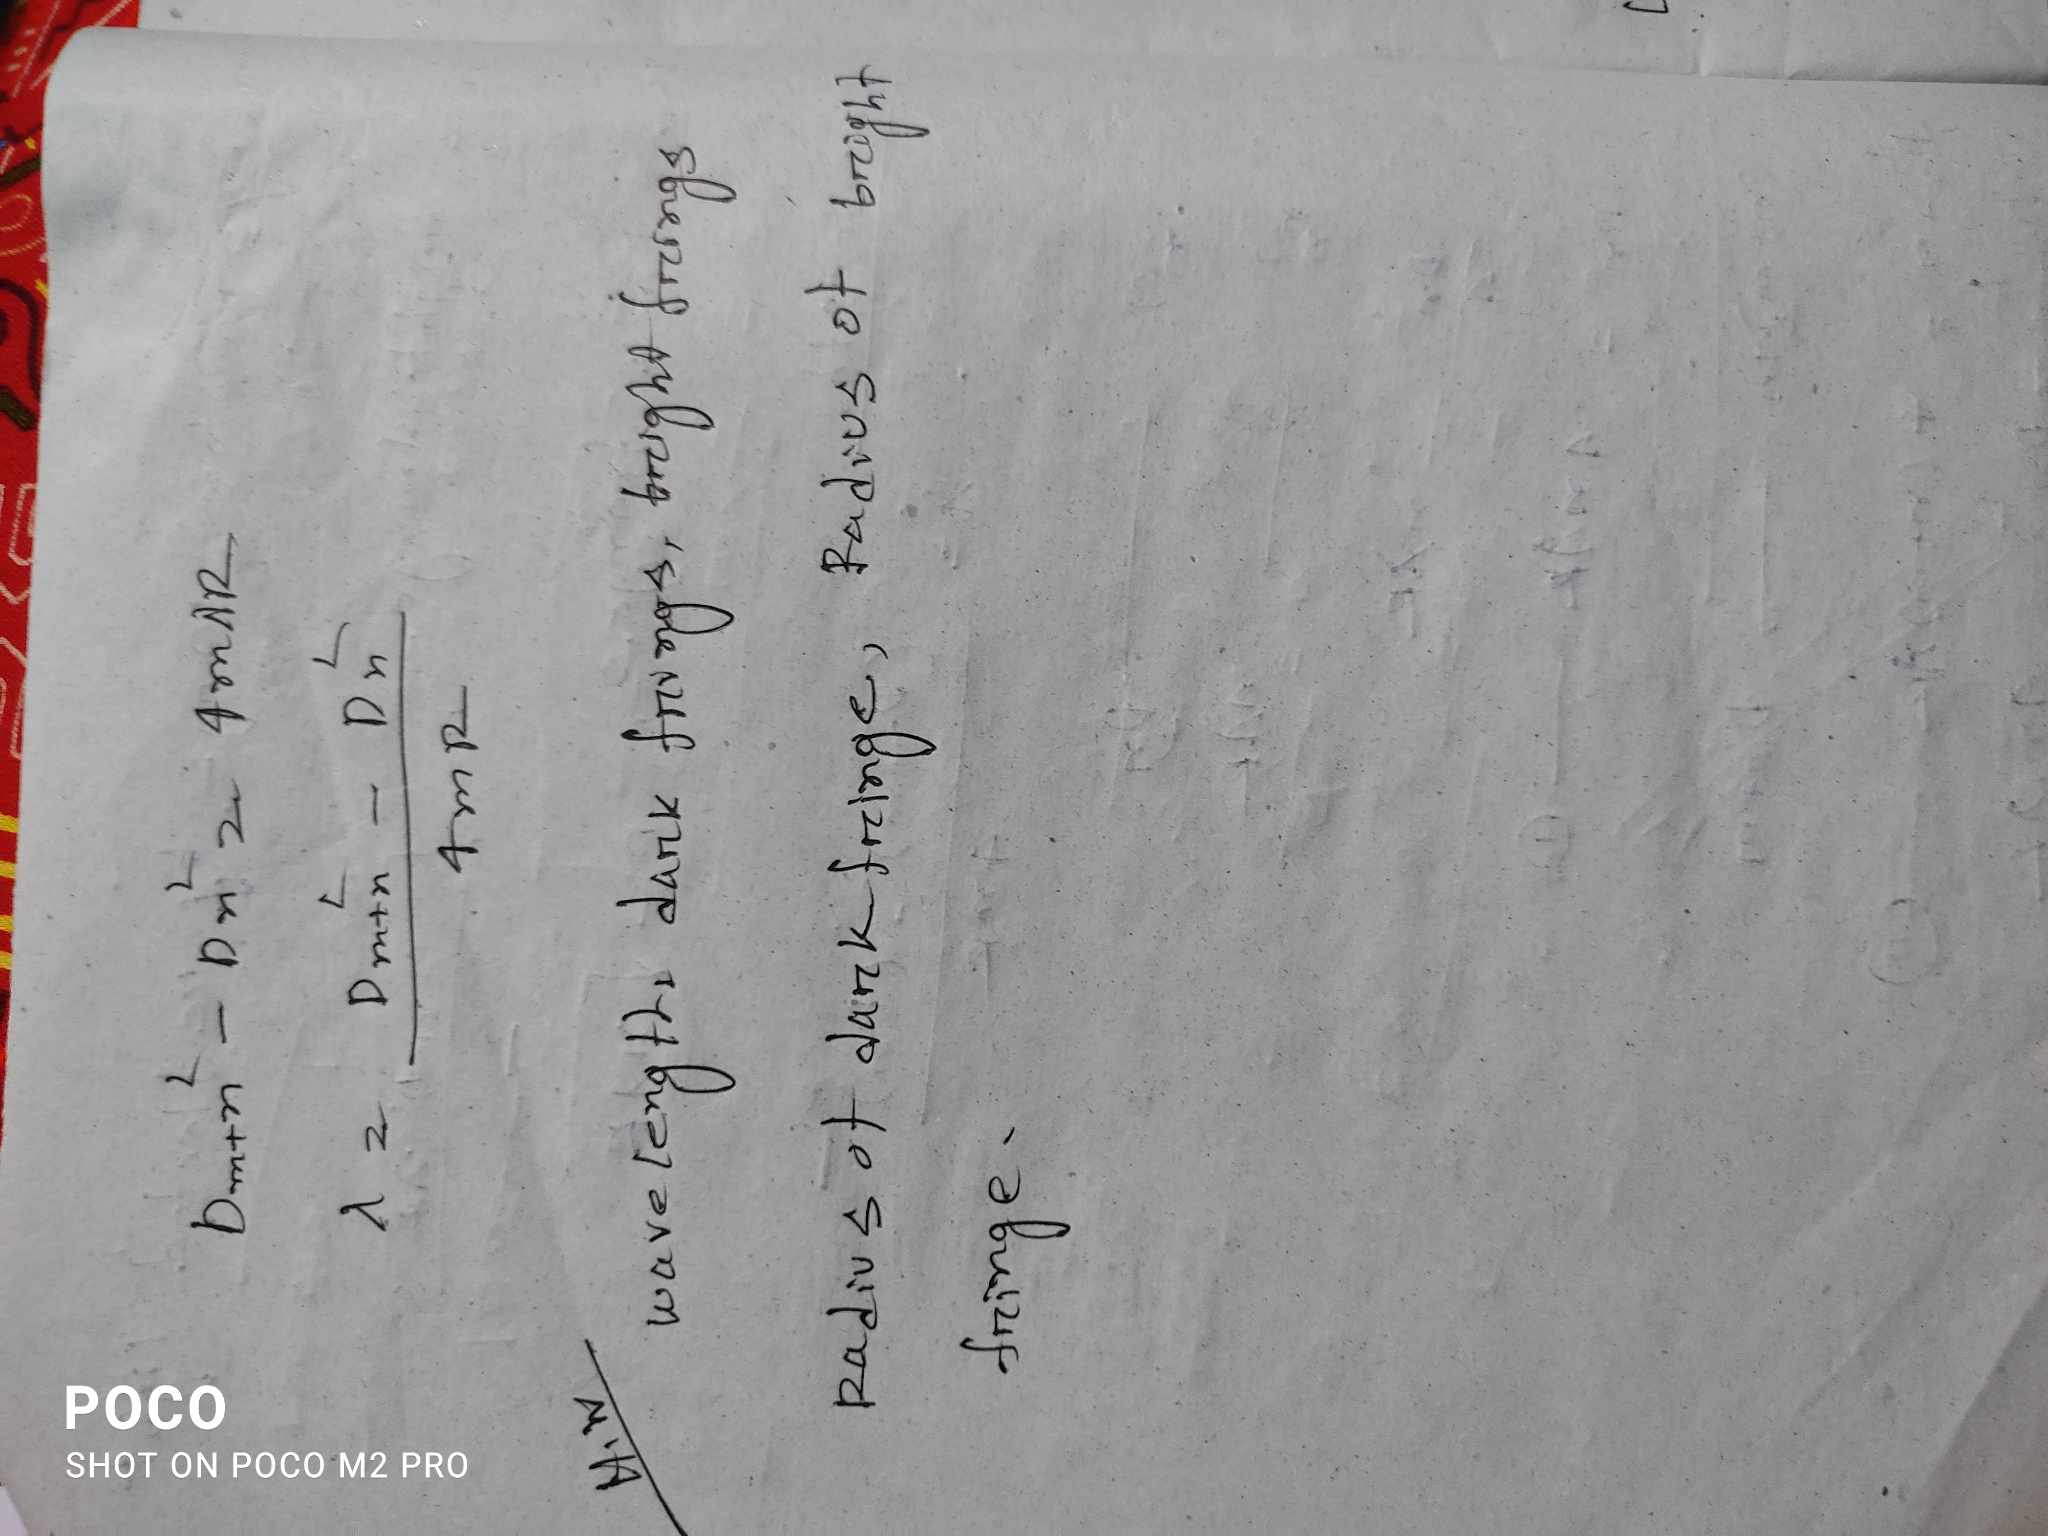 POCO
SHOT ON POCO M2 PRO
Dm+n² - Dn² = 4mλR
λ = Dm+n² - Dn²
4mR
H.W
wavelength, dark frings, bright frings
Radius of dark fringe, Radius of bright
fringe.